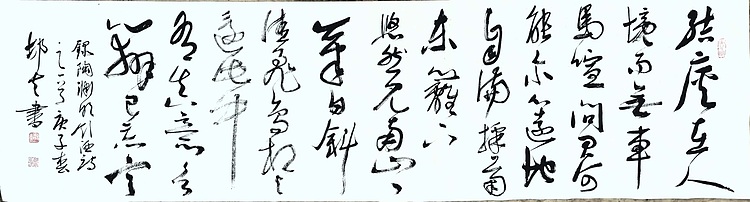 結廬在人
境而無車
馬喧問君何
能尔心遠地
自偏採菊
東籬下
悠然見南山々
氣日斜
佳飛鳥相与
還此中
有真意欲
辨已忘言
錄陶淵明飲酒詩
之一首庚子春
書